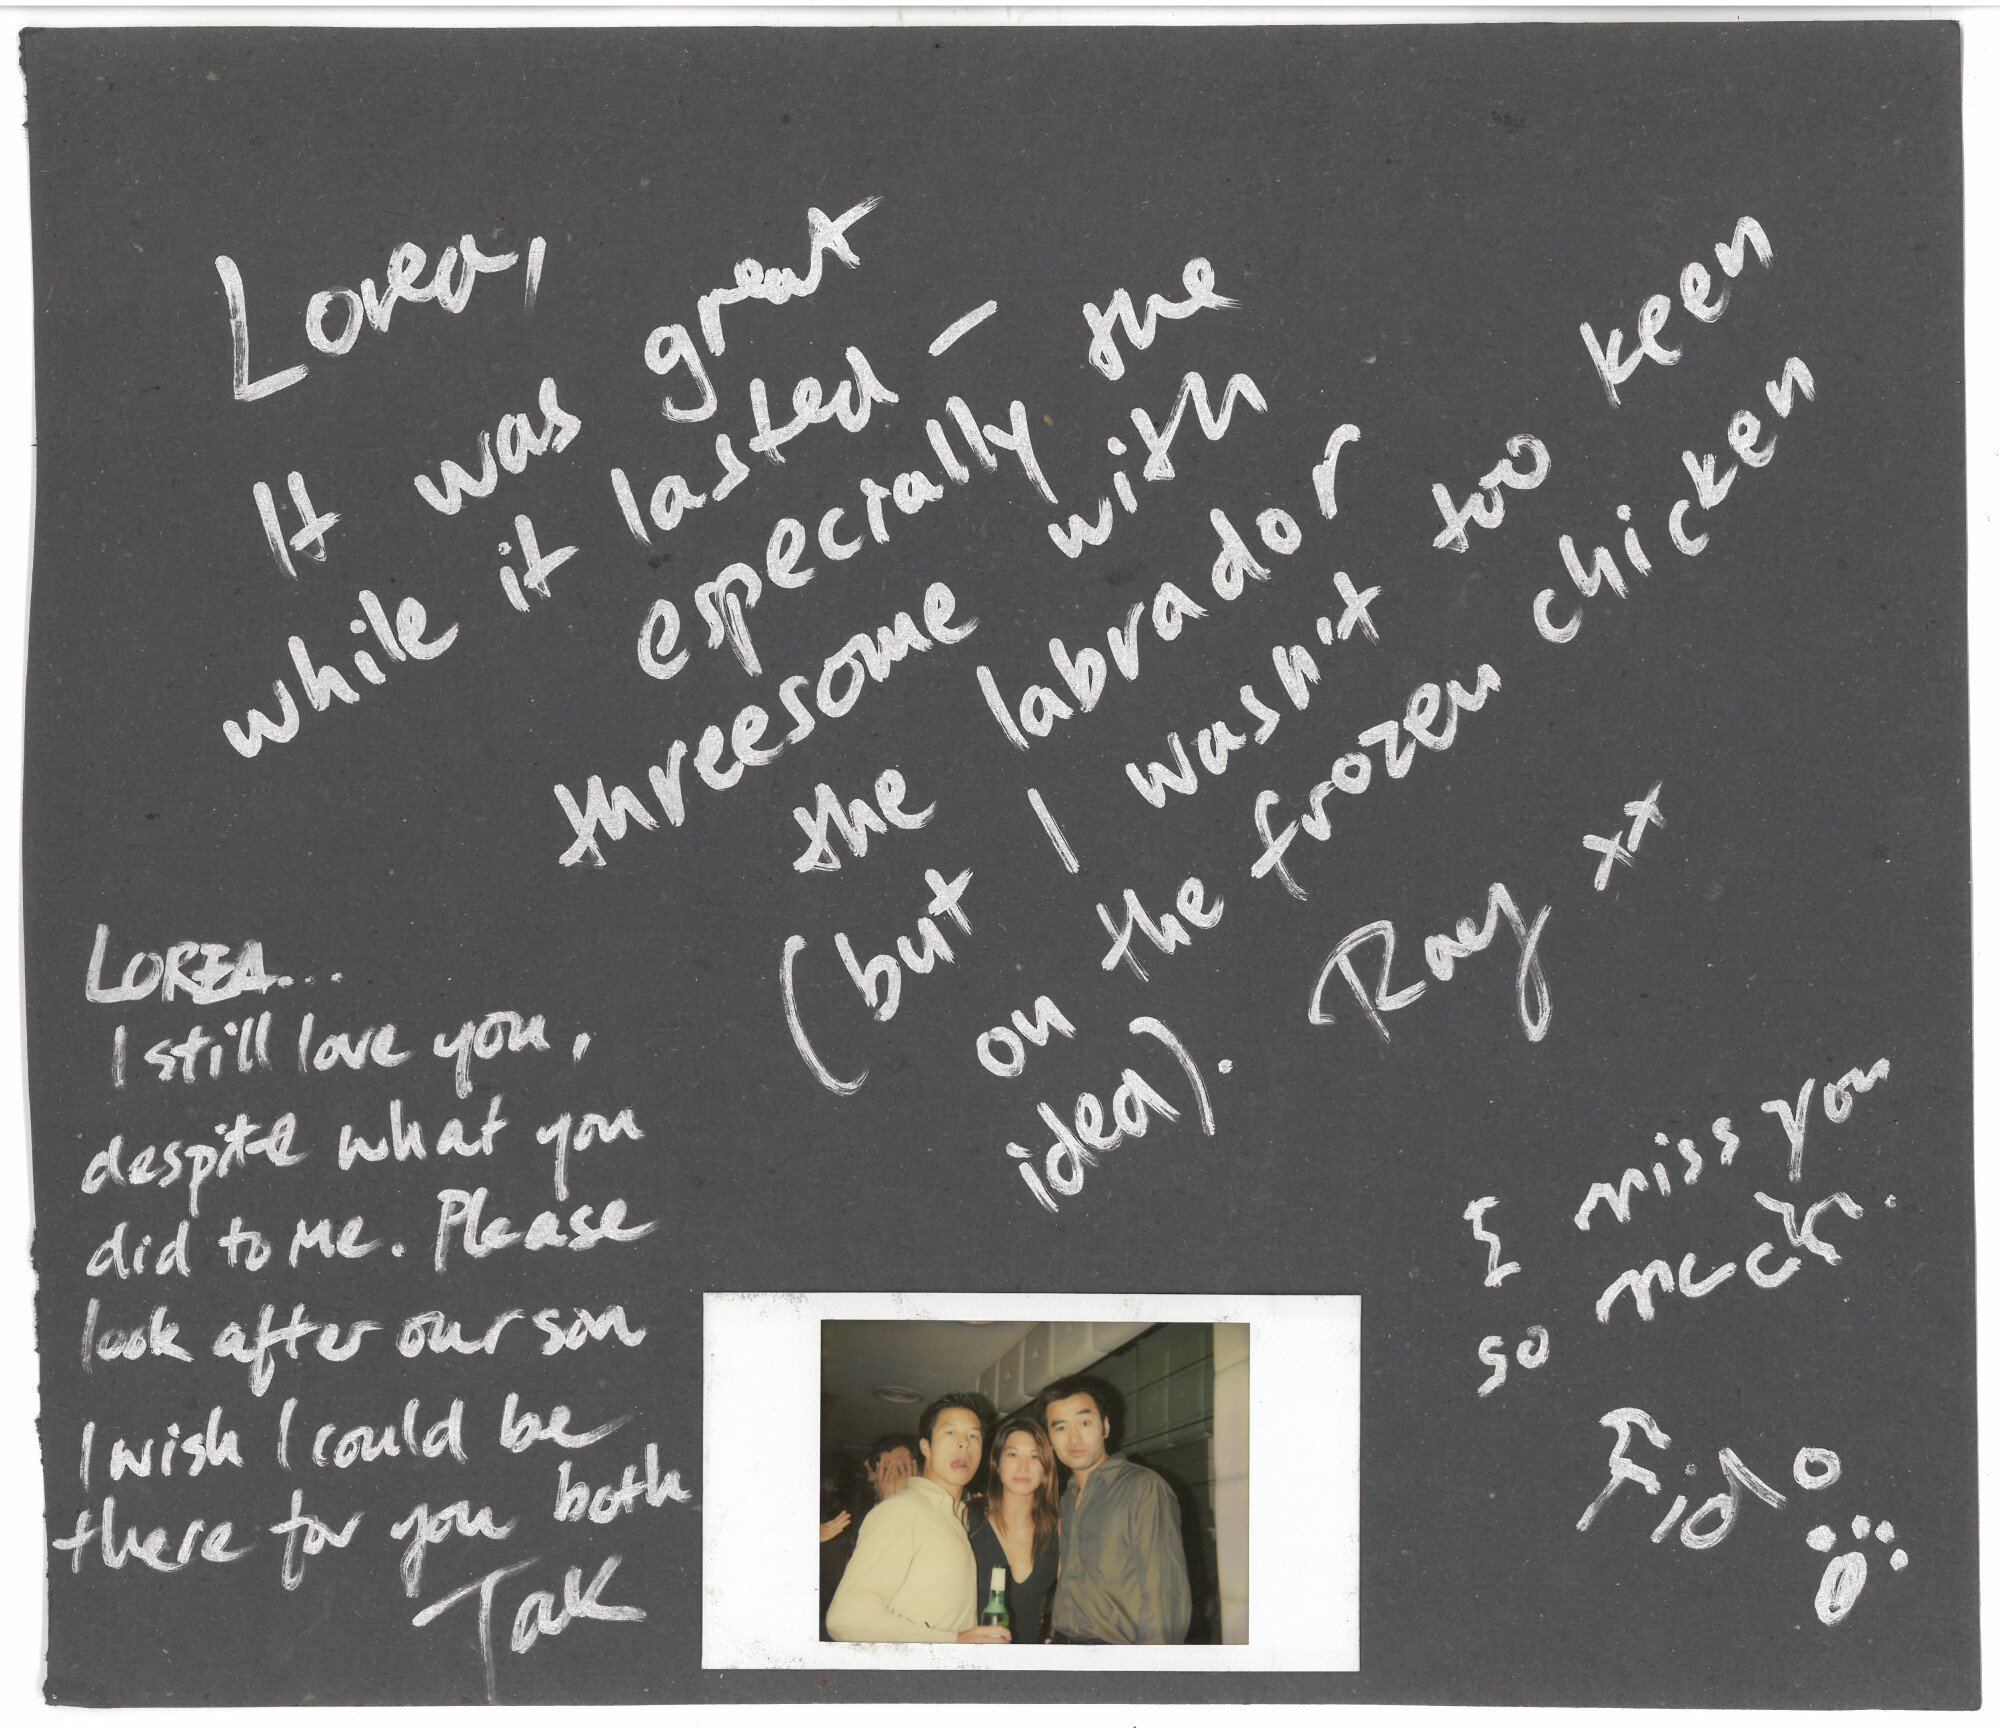 Lorea,
It was great
while it lasted –
especially the
threesome with
the labrador
(but I wasn't too keen
on the frozen chicken
idea).
Ray xx
LOREA...
I still love you,
despite what you
did to me. Please
look after our son
I wish I could be
there for you both
Tak
I miss you
so much.
Fido